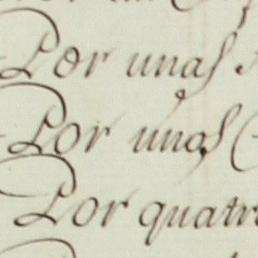 Por unas
Por unas
Por quatr